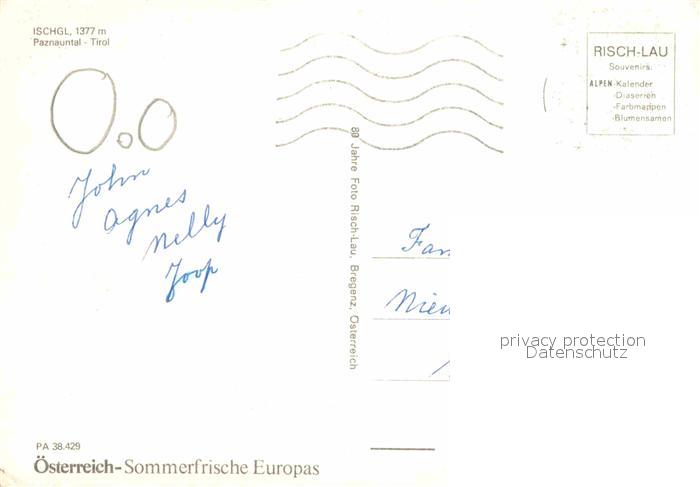 ISCHGL, 1377 m
Paznauntal - Tirol
RISCH-LAU
Souvenirs:
ALPEN-Kalender
-Diaserien
-Farbmappen
-Blumensamen
0.0
John
Agnes
Nelly
Joop
80 Jahre Foto Risch-Lau, Bregenz, Österreich
Fam
Nieu
privacy protection
Datenschutz
PA 38.429
Österreich-Sommerfrische Europas